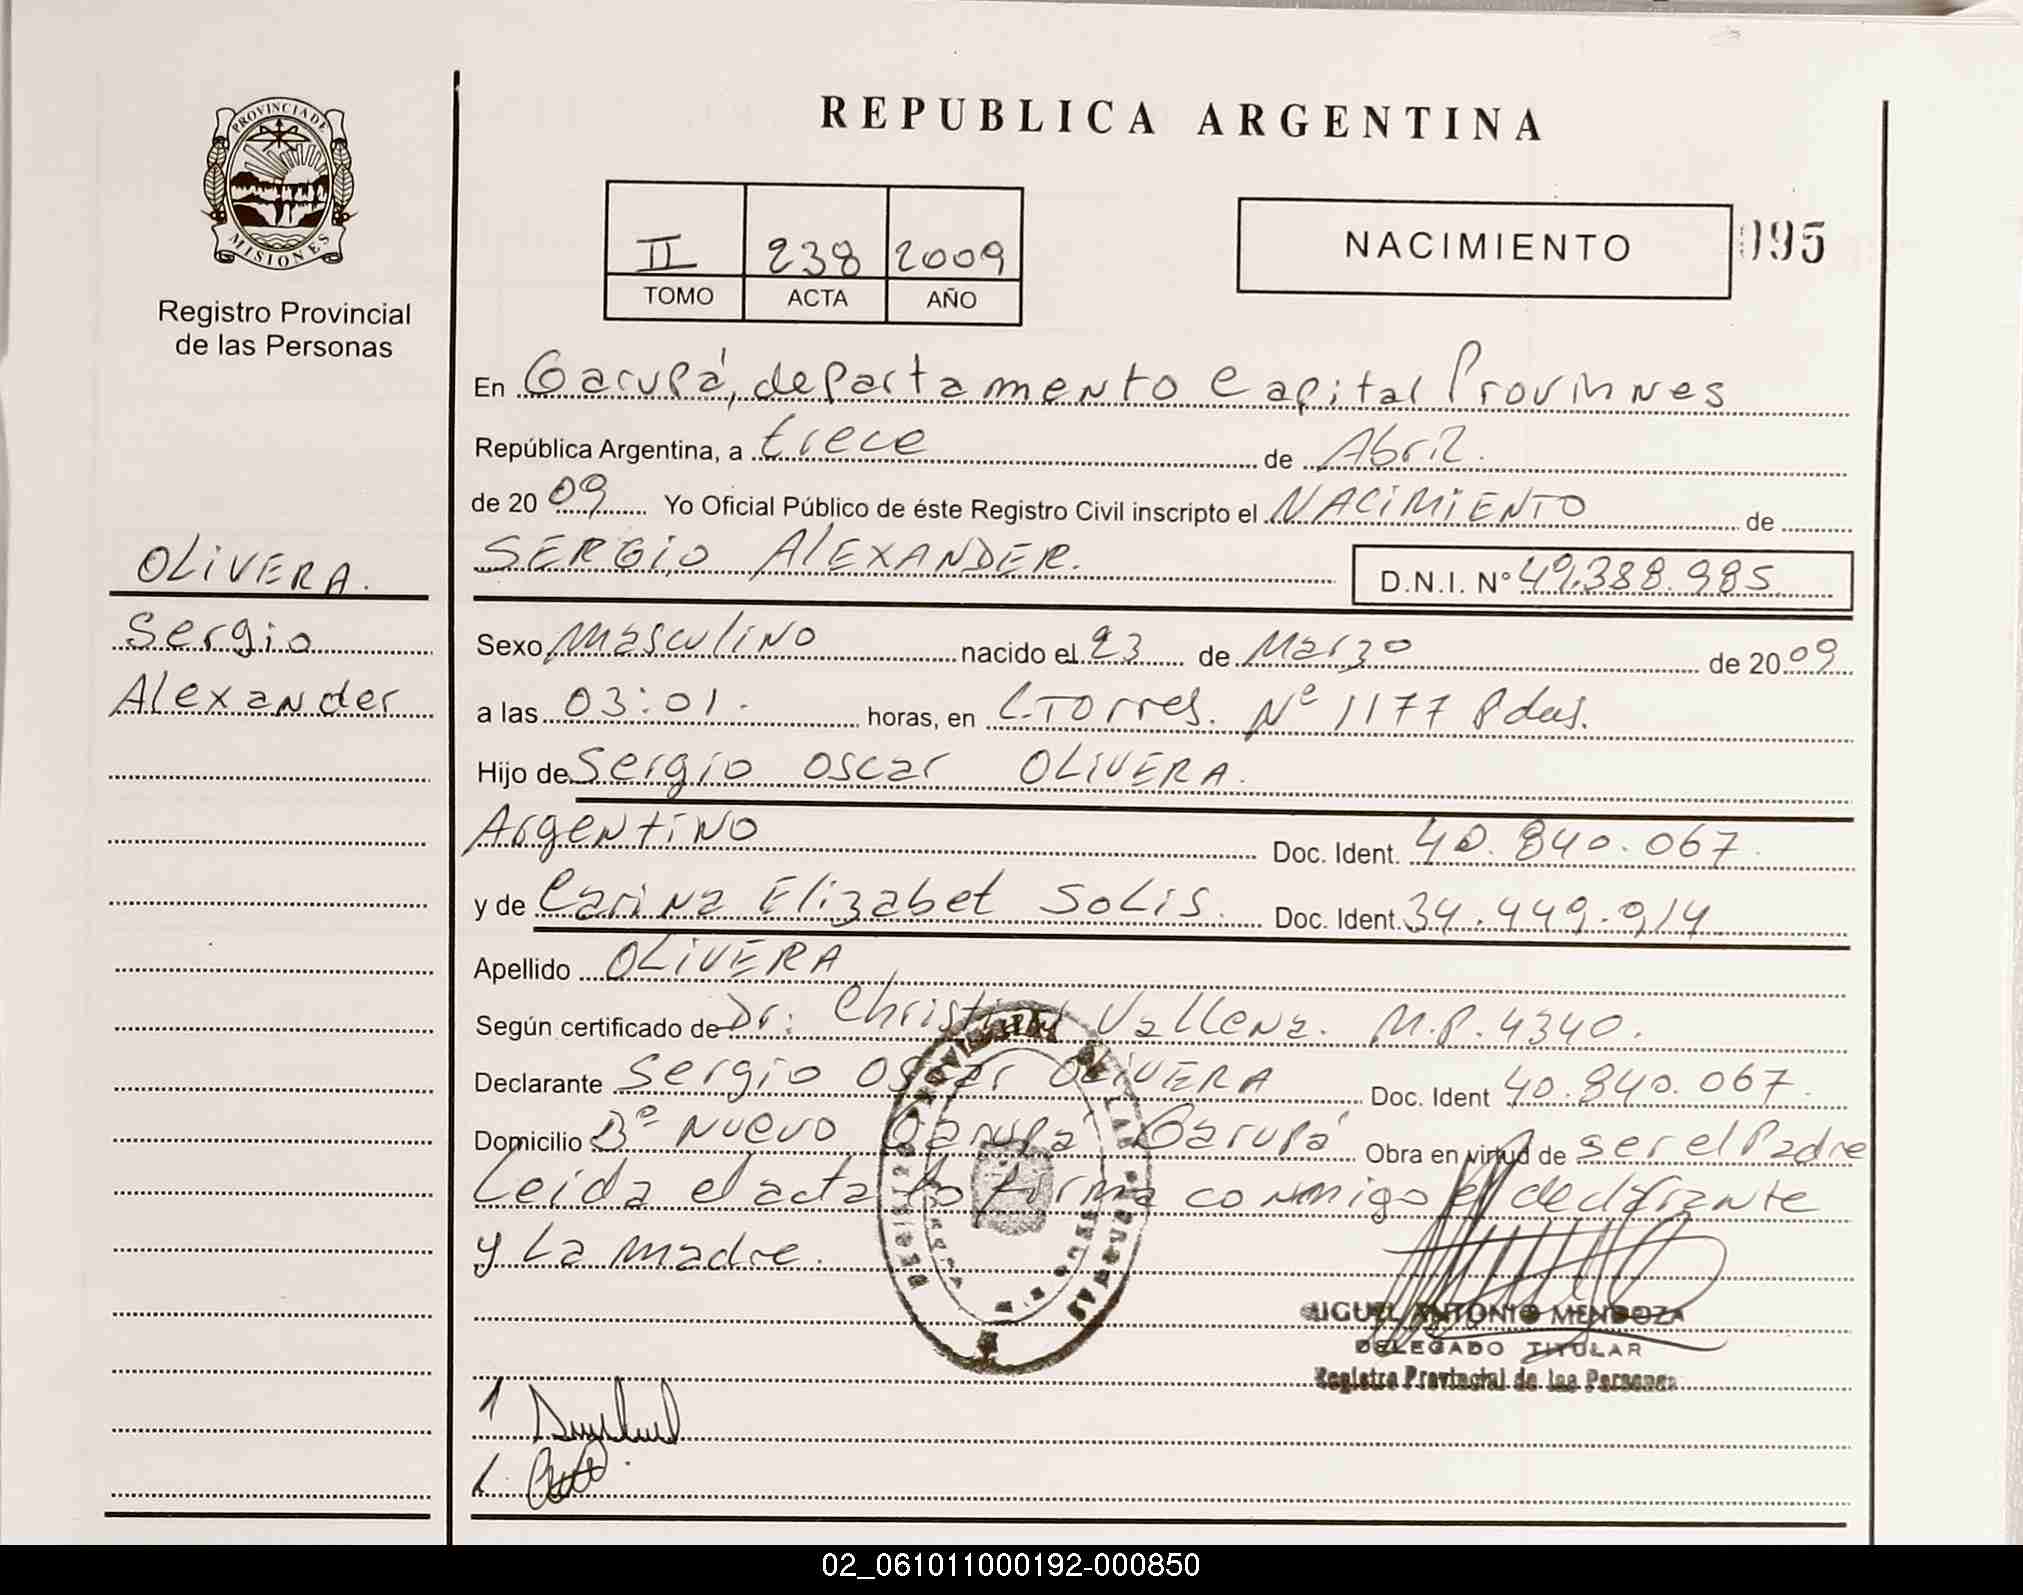 REPUBLICA ARGENTINA
PROVINCIA DE
MISIONES
Registro Provincial
de las Personas
II 238 2009
TOMO ACTA AÑO
NACIMIENTO
095
En Garupá, departamento Capital
República Argentina, a trece de Abril.
de 2009 Yo Oficial Público de éste Registro Civil inscripto el NACIMIENTO de
OLIVERA.
Sergio
Alexander
SERGIO ALEXANDER. D.N.I. Nº 49.388.985
Sexo Masculino nacido el 23 de Marzo de 2009
a las 03:01. horas, en L. Torres. Nº 1177 Pdas.
Hijo de Sergio Oscar OLIVERA.
Argentino Doc. Ident. 40.840.067.
y de Carina Elizabet SOLIS. Doc. Ident. 34.449.914
Apellido OLIVERA
Según certificado de Dr. Christian Vallena. M.P. 4340.
Declarante Sergio Oscar OLIVERA Doc. Ident 40.840.067.
Domicilio Bº Nuevo Garupá Garupá Obra en virtud de ser el Padre
Leída el acta la firma conmigo el declarante
y la madre.
MIGUEL ANTONIO MENDOZA
DELEGADO TITULAR
Registro Provincial de las Personas
1
02_061011000192-000850